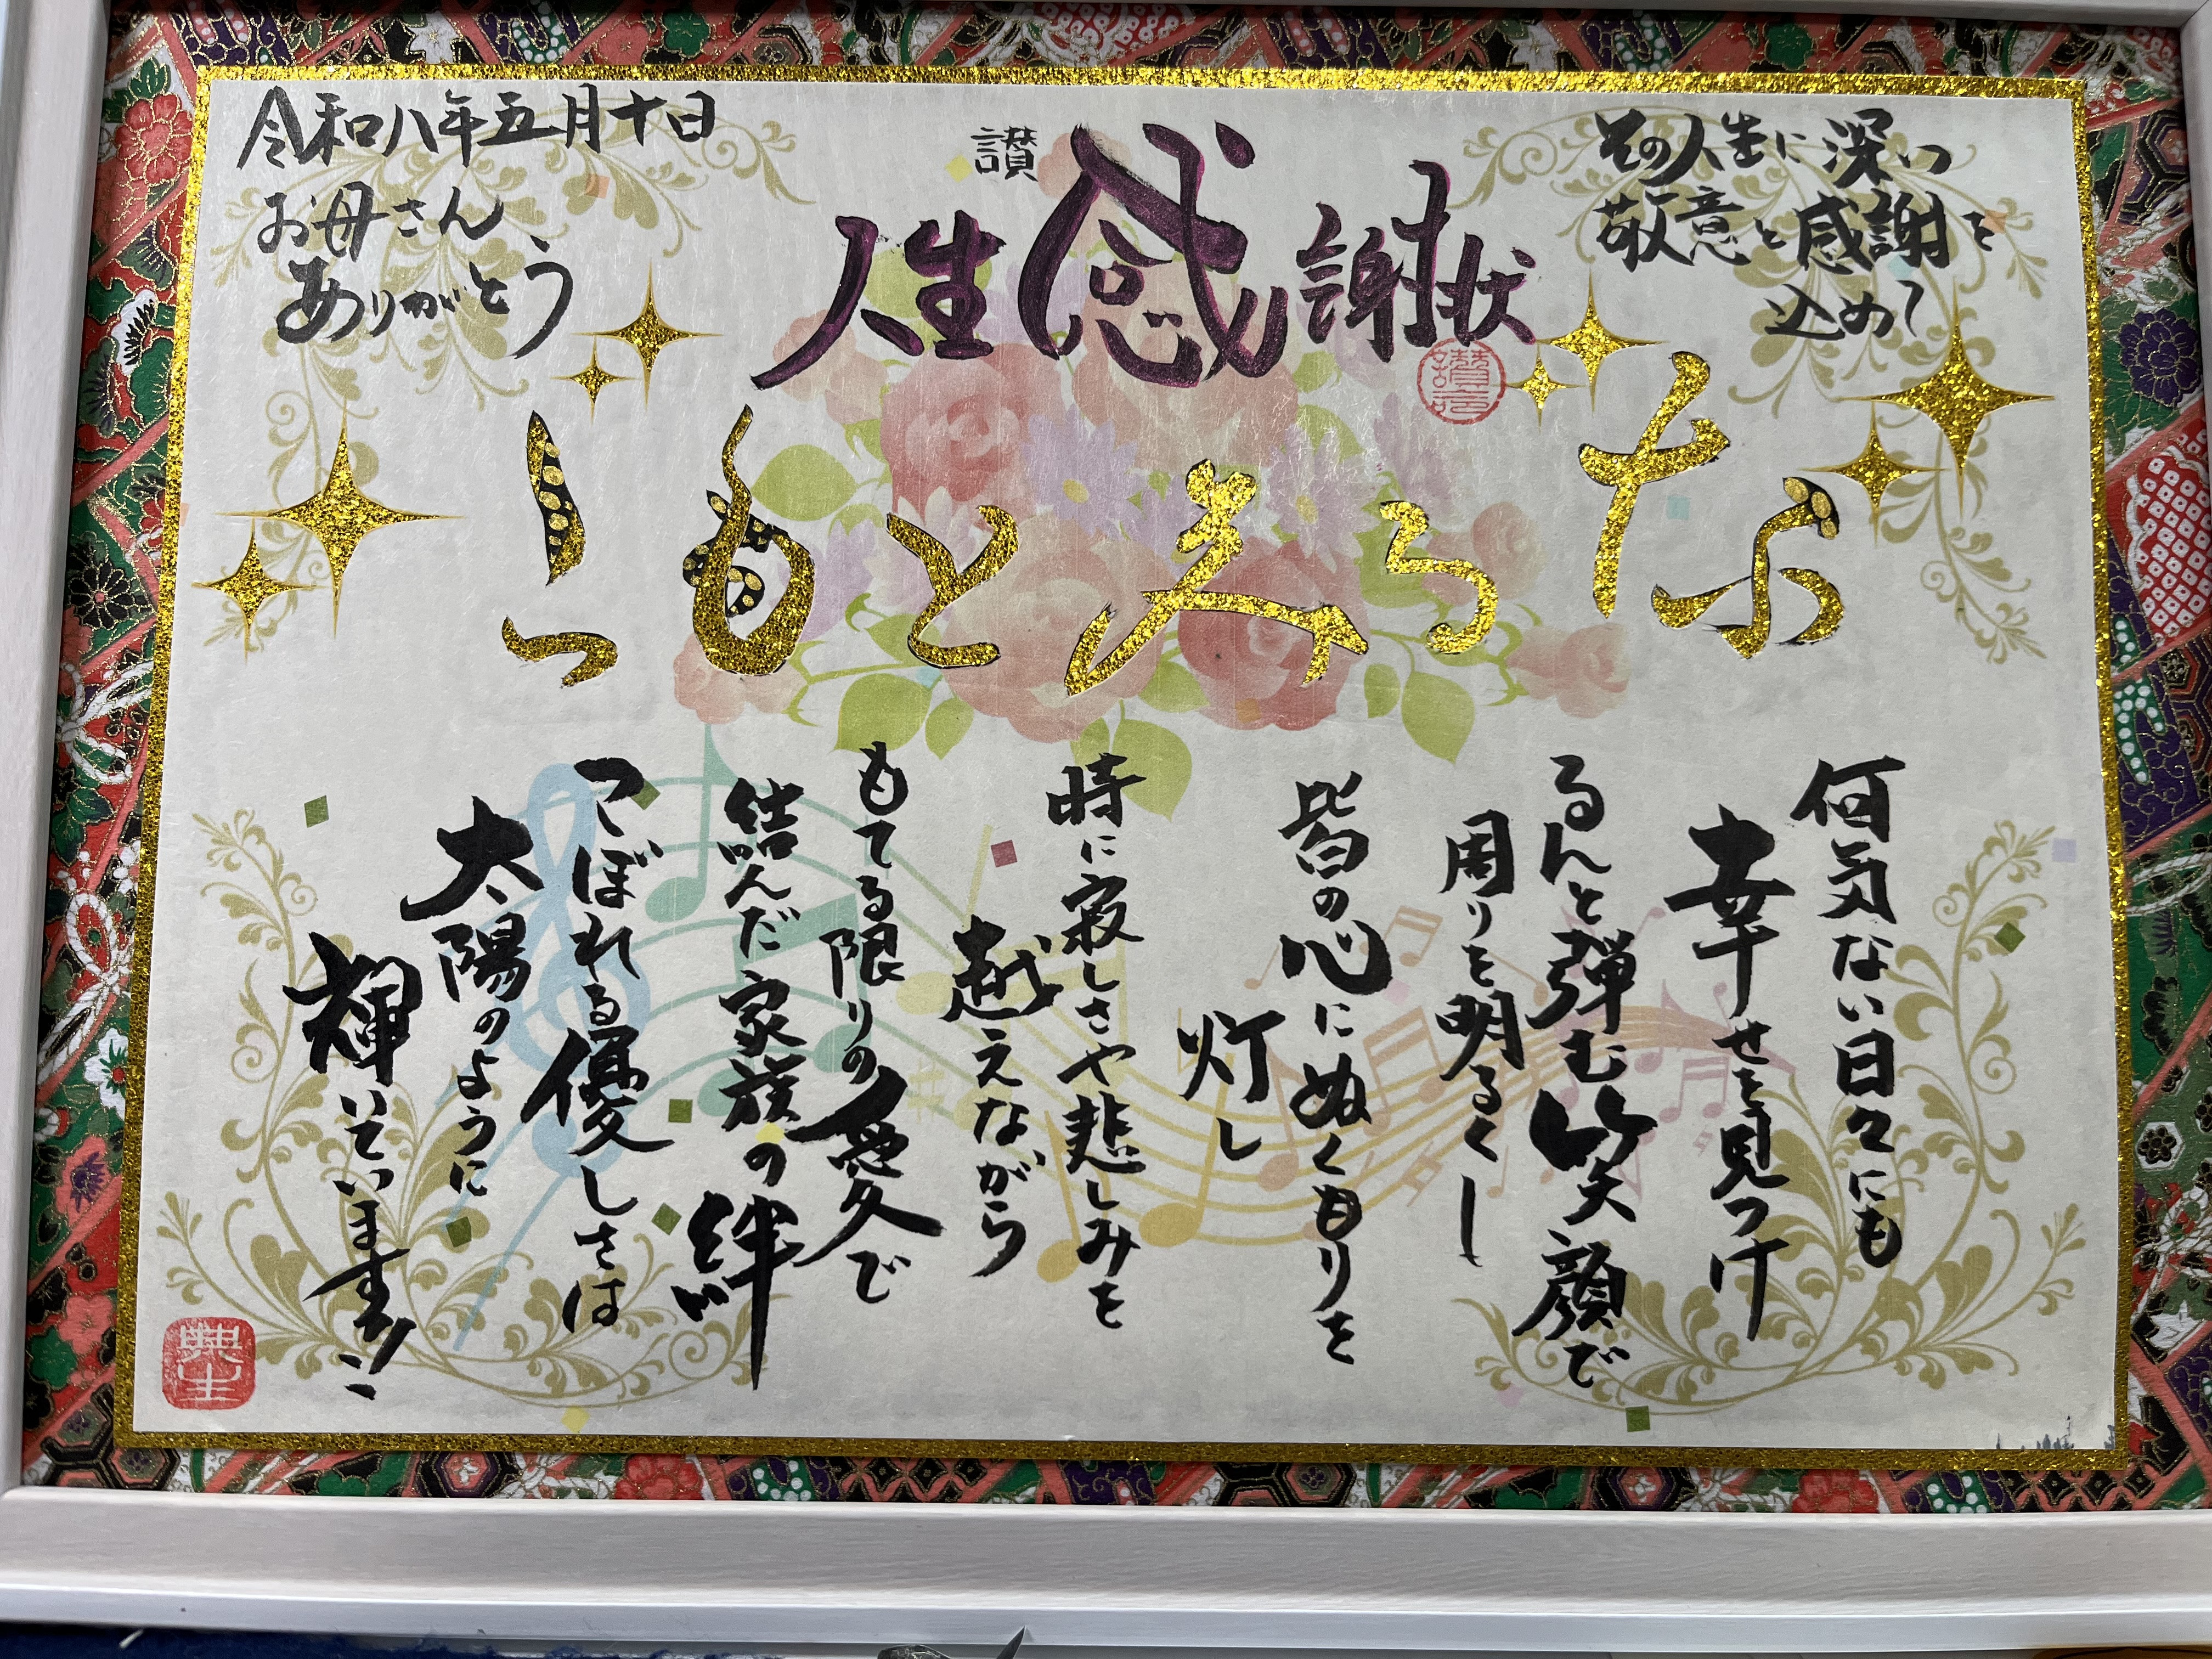 讃
人生感謝状
その人生に深い
敬意と感謝を
込めて
なる美ともこ
何気ない日々にも
幸せを見つけ
るんと弾む笑顔で
周りを明るくし
皆の心にぬくもりを
灯し
時に寂しさや悲しみを
越えながら
もてる限りの愛で
結んだ家族の絆
こぼれる優しさは
太陽のように
輝いています
令和八年五月十日
お母さん
ありがとう